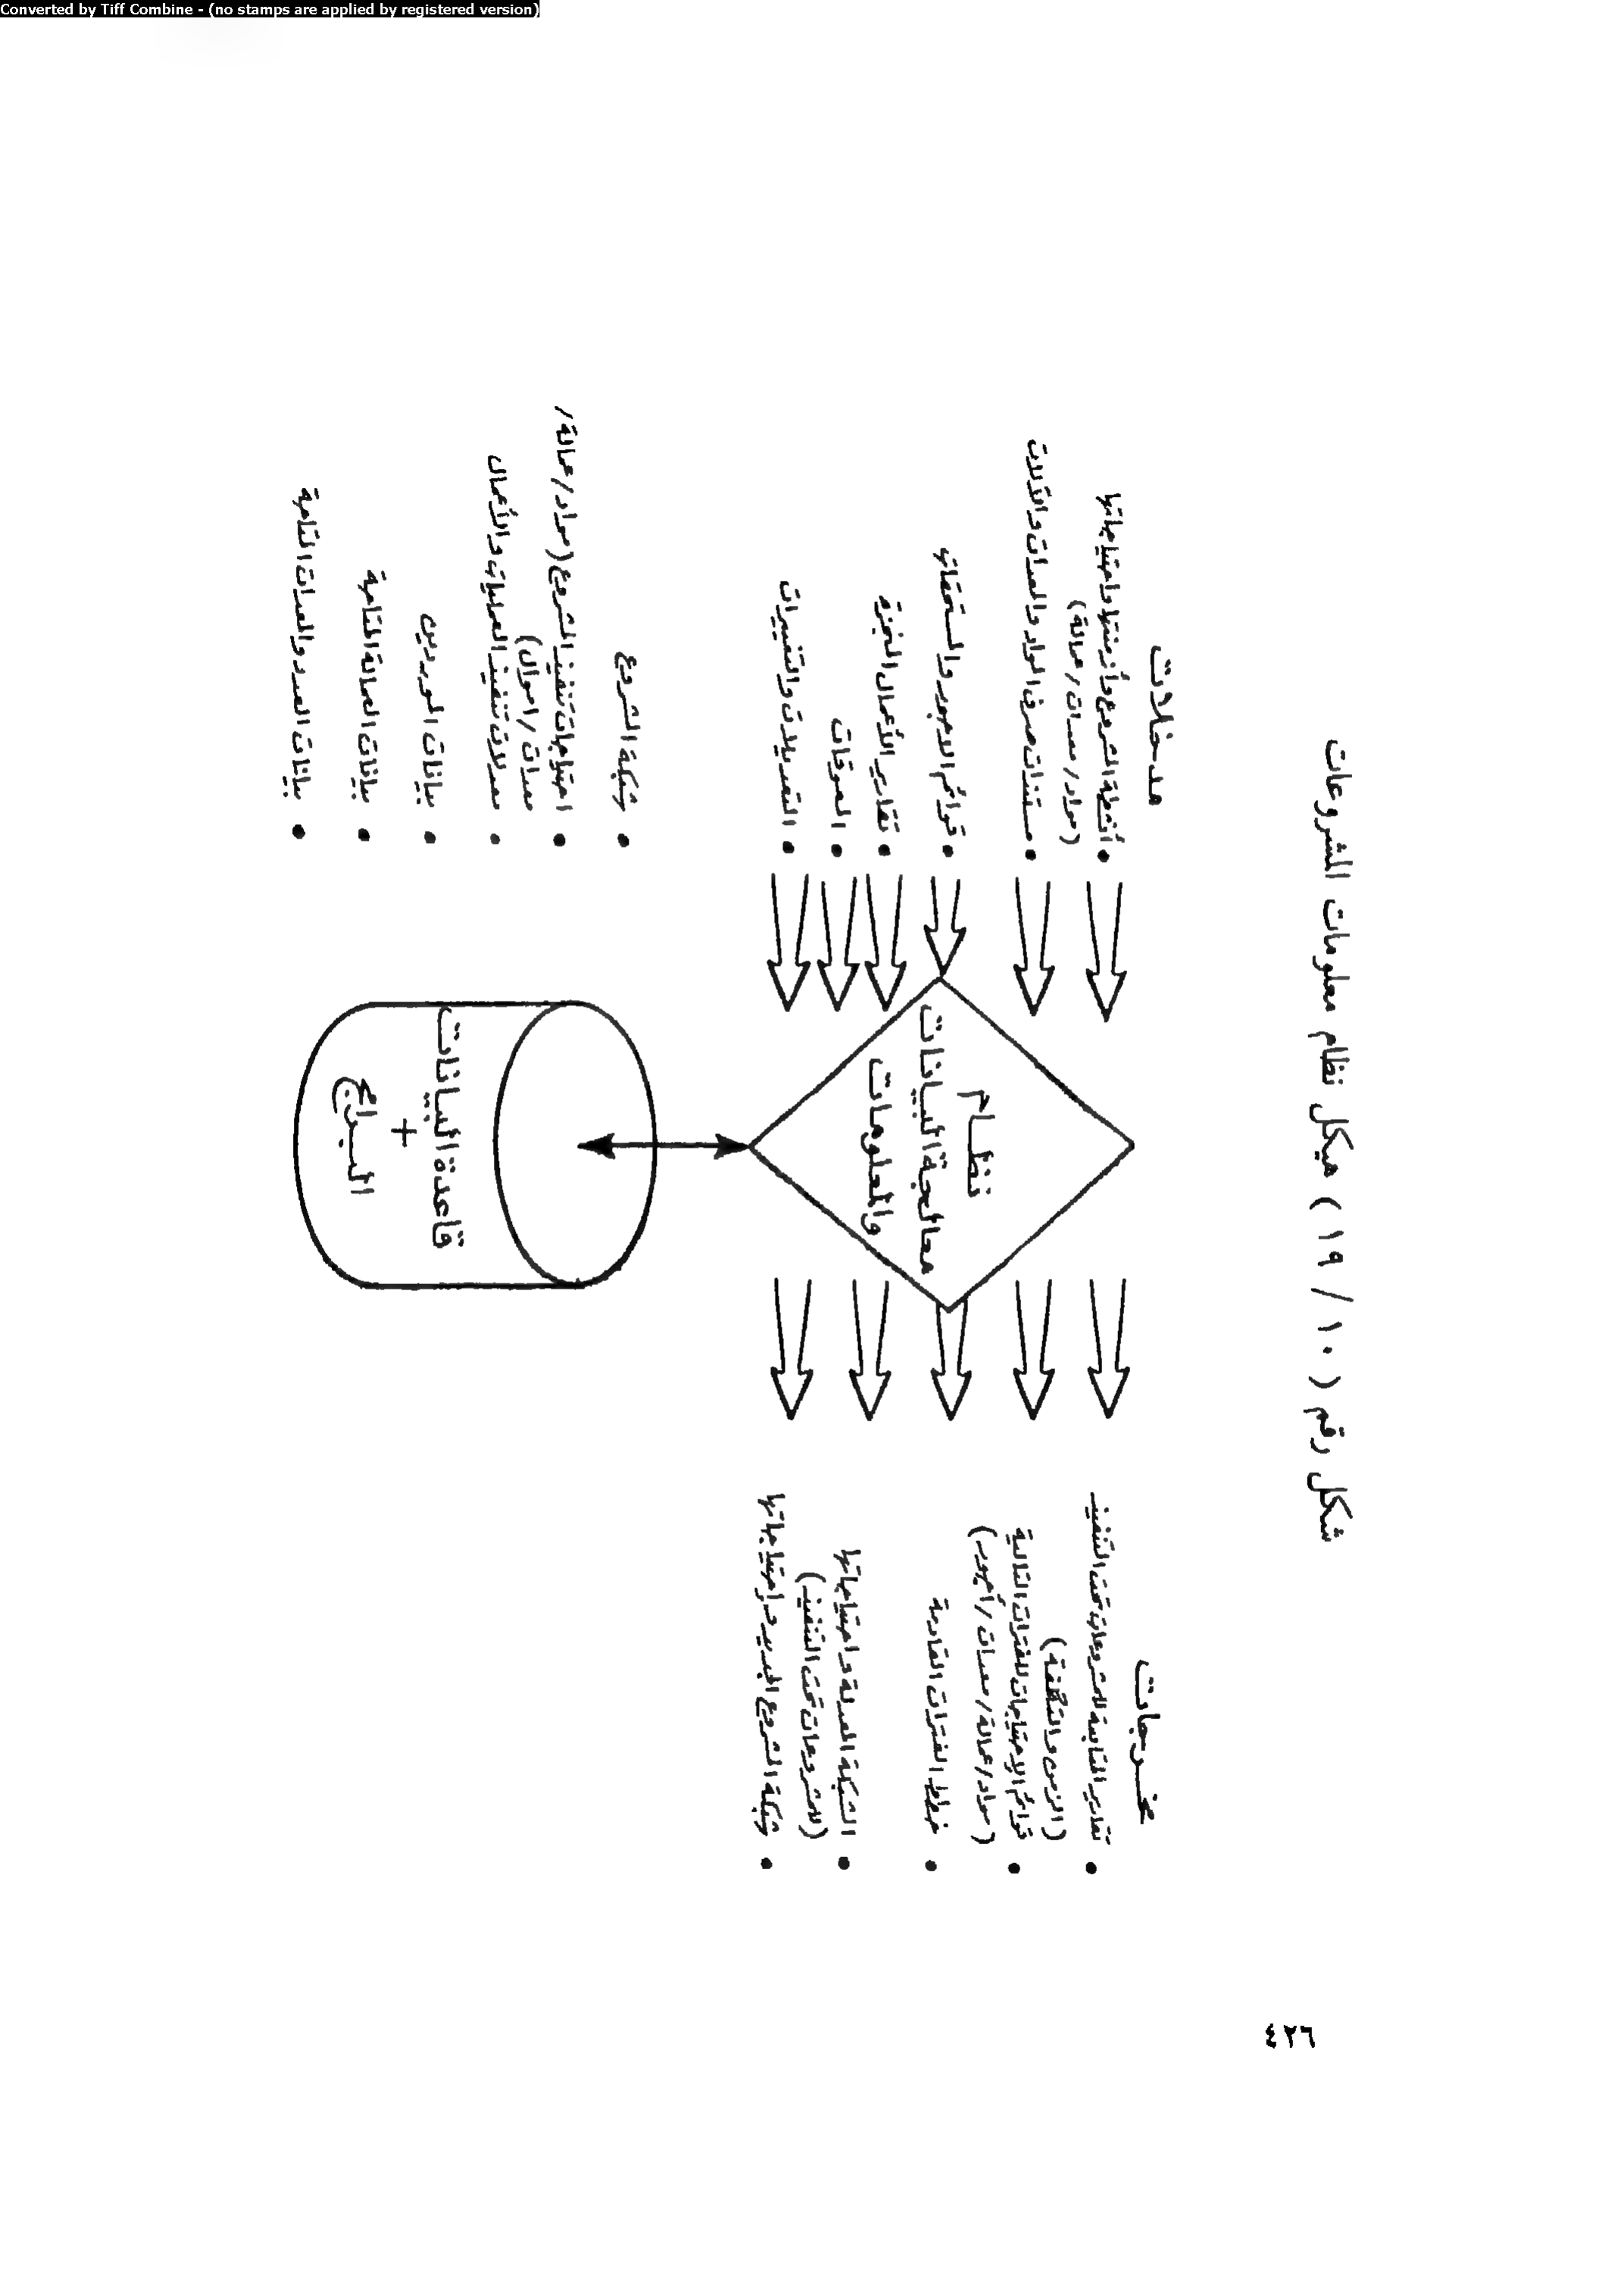 Converted by Tiff Combine - (no stamps are applied by registered version)
شكل رقم (١٠ / ١٩) هيكل نظام معلومات المشروعات
مدخلات
• أنشطة المشروع وأزمنتها واحتياجاتها
(مواد / معدات / عمالة)
• مستندات صرف المواد والمعدات والآلات
• قوائم الاجور والمستحقات
• تقارير الأعمال المنجزة
• المعوقات
• التعديلات والتغييرات
نظـام
معالجة البيانات
والمعلومات
مخرجات
• تقارير المتابعة للمشروعات تحت التنفيذ
(الزمن والتكلفة)
• قوائم الاحتياجات للفترات التالية
(مواد / عمالة / معدات / أجور)
• خطط الفترات القادمة
• الشبكة المعدلة واحتياجاتها
(للمشروعات تحت التنفيذ)
• شبكة المشروع الجديد واحتياجاتها
قاعدة البيانات
+
البـرامج
• شبكة المشروع
• احتياجات تنفيذ المشروع (مواد / عمالة /
معدات / اموال)
• معدلات تنفيذ العمليات والأعمال
• بيانات الموردين
• بيانات العمالة المتاحة
• بيانات العدد والمعدات المتاحة
٤٢٦